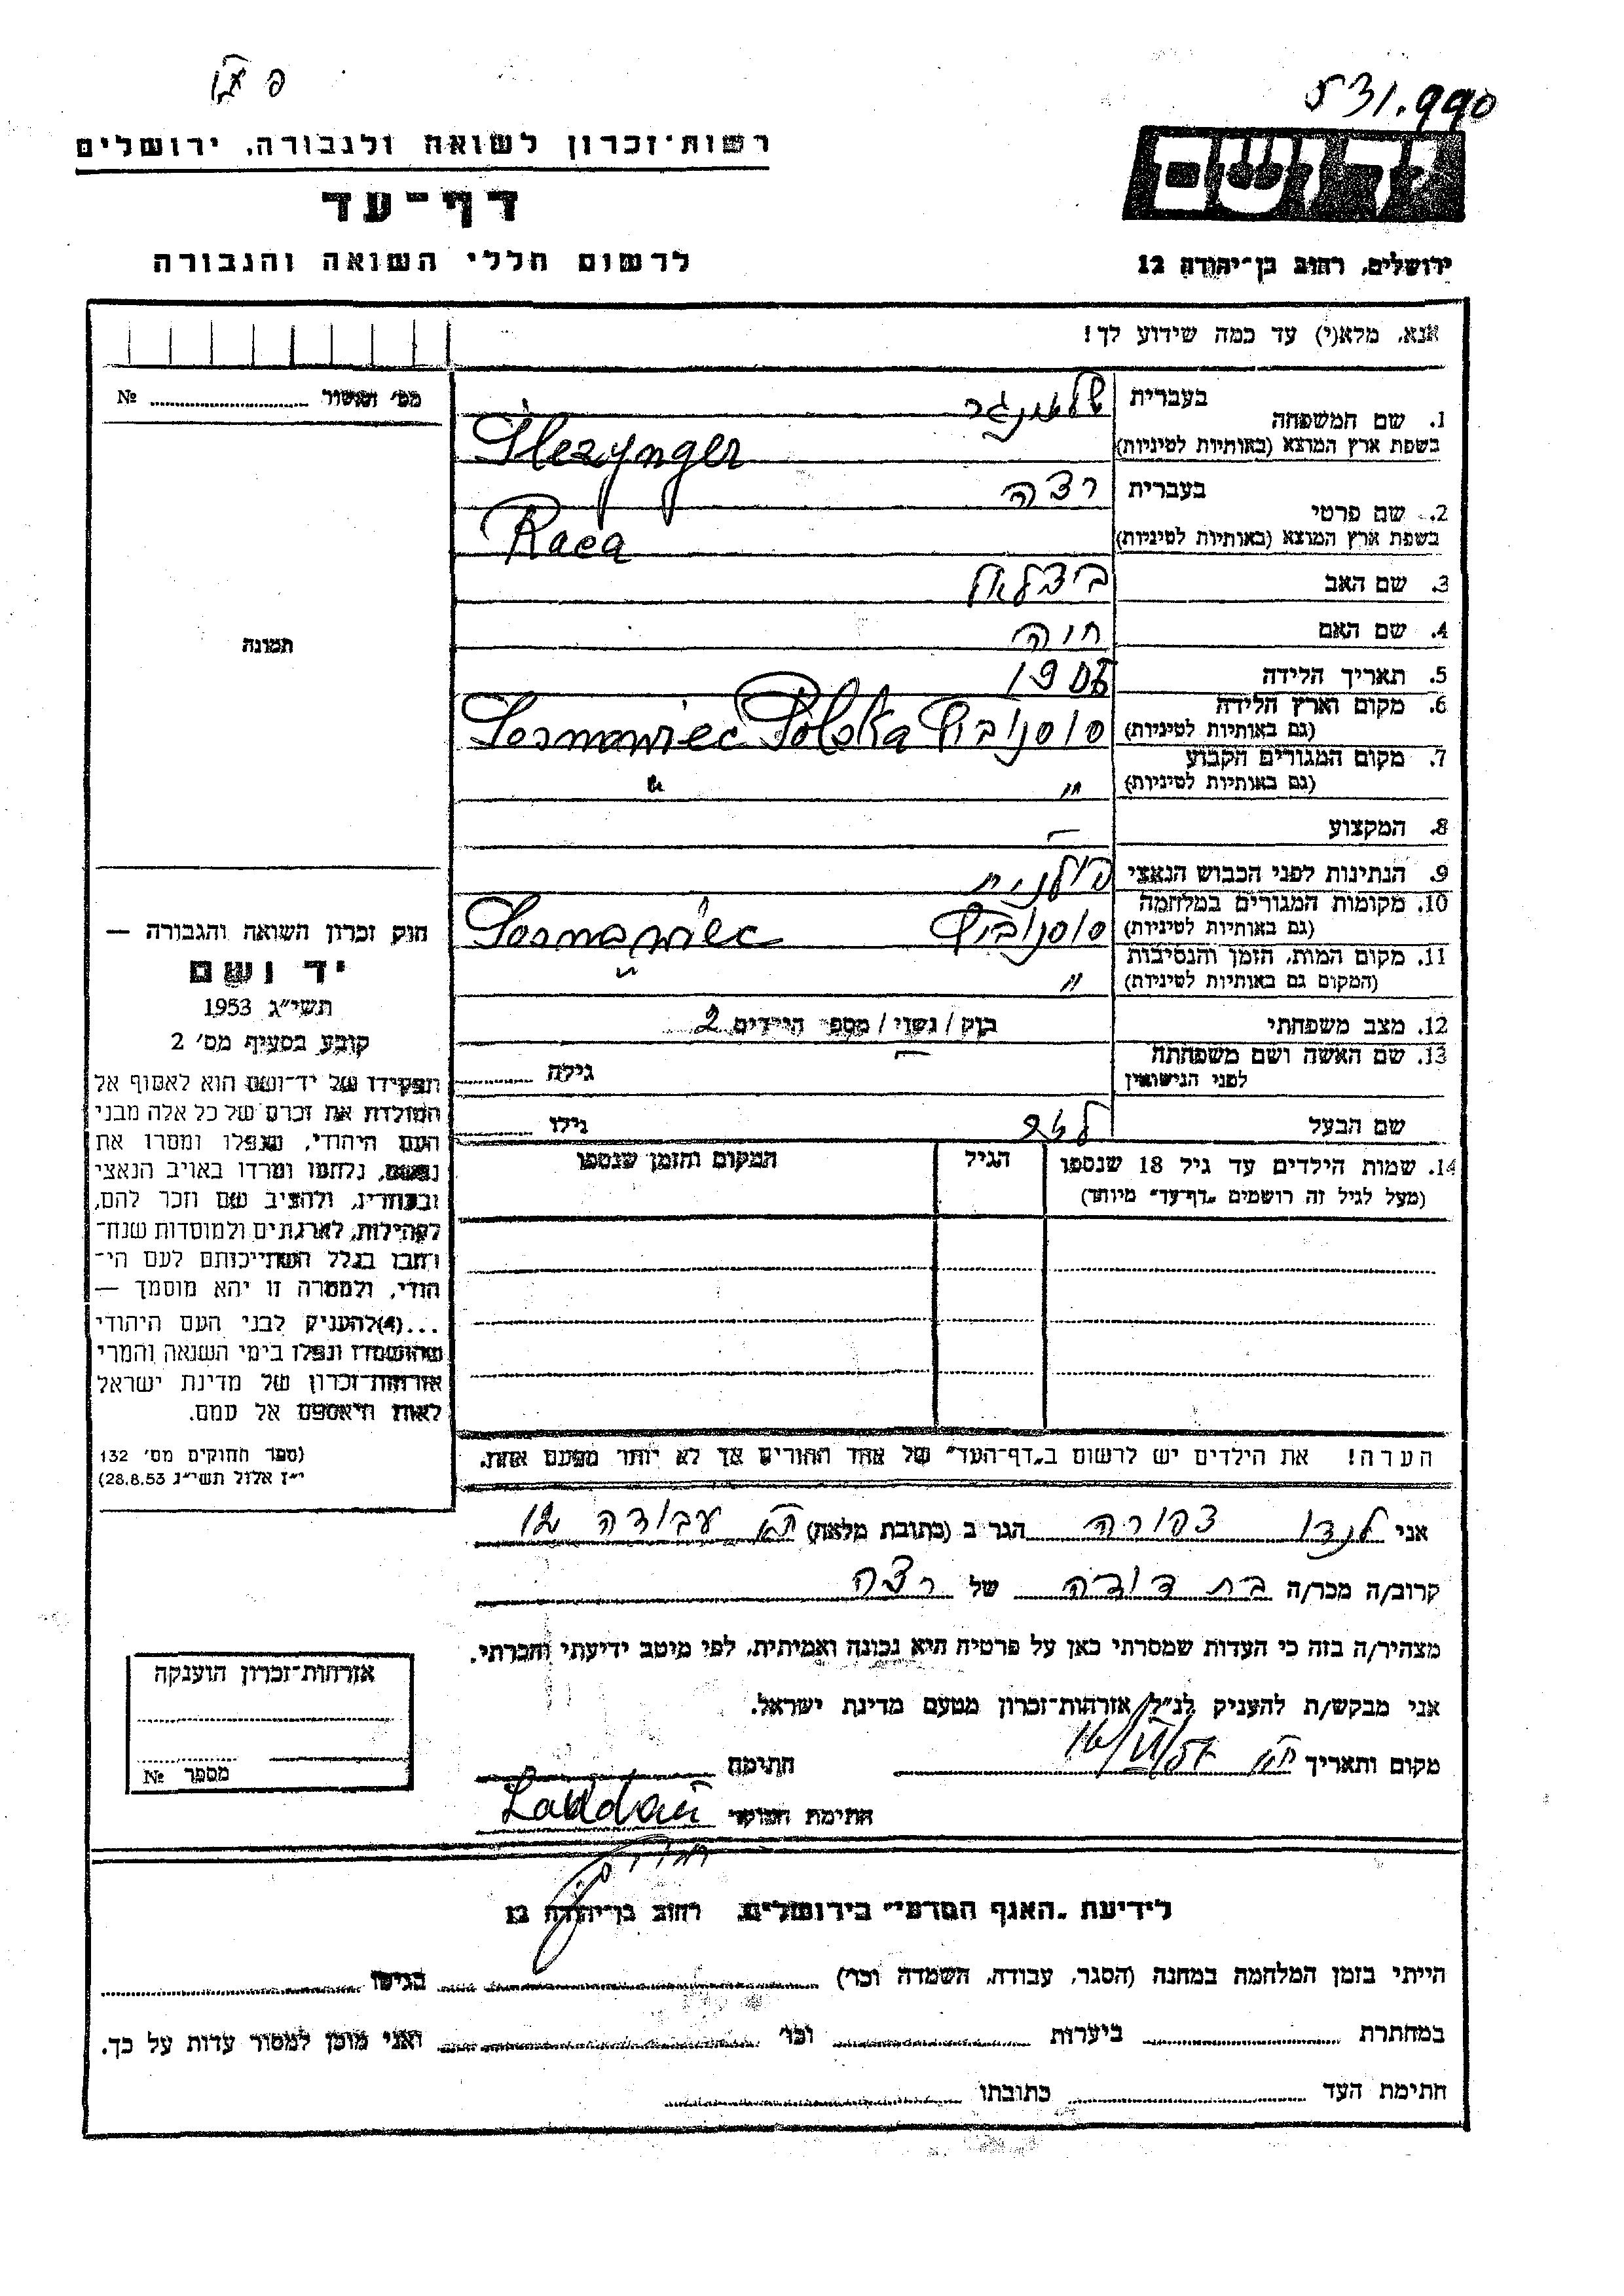 531.990
רשות-זכרון לשואה ולגבורה, ירושלים
יד ושם
דף-עד
לרשום חללי השואה והגבורה
ירושלים, רחוב בן-יהודה 12
אנא, מלא(י) עד כמה שידוע לך!
מס' ואשור № 
1. שם המשפחה
בעברית
בשפת ארץ המוצא (באותיות לטיניות)
Slezynger
2. שם פרטי
בעברית רצה
בשפת ארץ המוצא (באותיות לטיניות)
Raca
3. שם האב בצלאל
4. שם האם חוה
5. תאריך הלידה
6. מקום וארץ הלידה
(גם באותיות לטיניות) סוסנוביץ Sosnowiec Polska
7. מקום המגורים הקבוע
(גם באותיות לטיניות) " "
8. המקצוע —
9. הנתינות לפני הכבוש הנאצי פולנית
10. מקומות המגורים במלחמה
(גם באותיות לטיניות) סוסנוביץ Sosnowiec
11. מקום המות, הזמן והנסיבות
(המקום גם באותיות לטיניות) " "
12. מצב משפחתי רווק / נשוי / מספר הילדים 2
13. שם האשה ושם משפחתה
לפני הנישואין — גילה
שם הבעל גילו
14. שמות הילדים עד גיל 18 שנספו
(מעל לגיל זה רושמים „דף-עד" מיוחד)
הגיל
המקום והזמן שנספו
הערה! את הילדים יש לרשום ב„דף-העד" של אחד ההורים אך לא יותר מפעם אחת.
תמונה
חוק זכרון השואה והגבורה —
יד ושם
תשי"ג 1953
קובע בסעיף מס' 2
תפקידו של יד-ושם הוא לאסוף אל
המולדת את זכרם של כל אלה מבני
העם היהודי, שנפלו ומסרו את
נפשם, נלחמו ומרדו באויב הנאצי
ובעוזריו, ולהציב שם וזכר להם,
לקהילות, לארגונים ולמוסדות שנח-
רחבו בגלל השתייכותם לעם הי-
הודי, ולמטרה זו יהא מוסמך —
...(4)להעניק לבני העם היהודי
שהושמדו ונפלו בימי השואה והמרי
אזרחות-זכרון של מדינת ישראל
לאות היאספם אל עמם.
(ספר החוקים מס' 132
י"ז אלול תשי"ג 28.8.53)
אני לנדו צפורה הגר ב (כתובת מלאה) ת"א עבודה 12
קרוב/ה מכר/ה בת דודה של רצה
מצהיר/ה בזה כי העדות שמסרתי כאן על פרטיה היא נכונה ואמיתית, לפי מיטב ידיעתי והכרתי.
אני מבקש/ת להעניק לנ"ל אזרחות-זכרון מטעם מדינת ישראל.
מקום ותאריך ת"א חתימה
חתימת הפוקד Landau
אזרחות-זכרון הוענקה
מספר №
לידיעת „האגף המדעי" בירושלים, רחוב בן-יהודה 12
הייתי בזמן המלחמה במחנה (הסגר, עבודה, השמדה וכו') בגיטו
במחתרת ביערות וכו' ואני מוכן למסור עדות על כך.
חתימת העד כתובתו